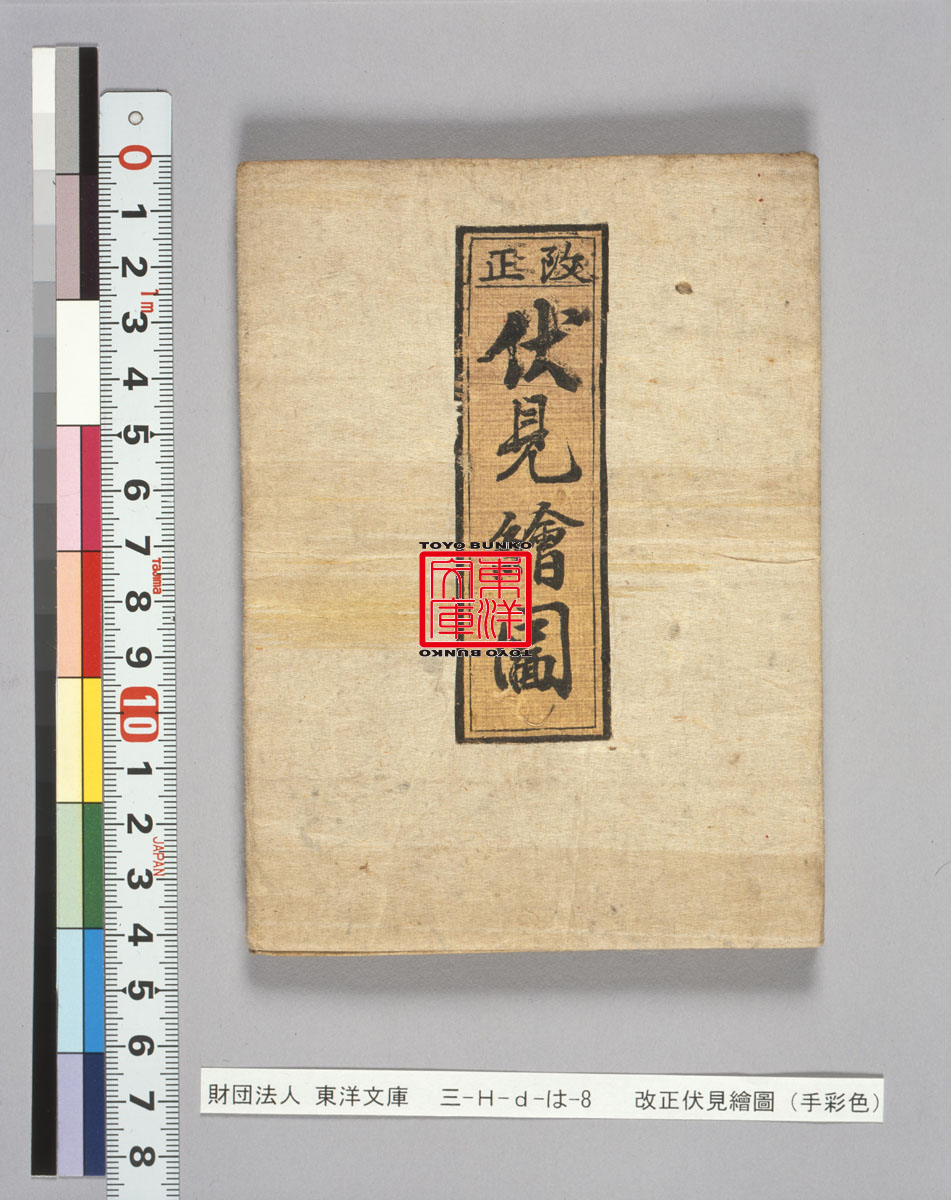 改正
伏見繪圖
TOYO BUNKO
東洋文庫
TOYO BUNKO
0
1
2
1m
3
4
5
6
7
Tajima
8
9
10
1
2
JAPAN
3
4
5
6
7
8
財団法人 東洋文庫 三-H-d-は-8 改正伏見繪圖（手彩色）